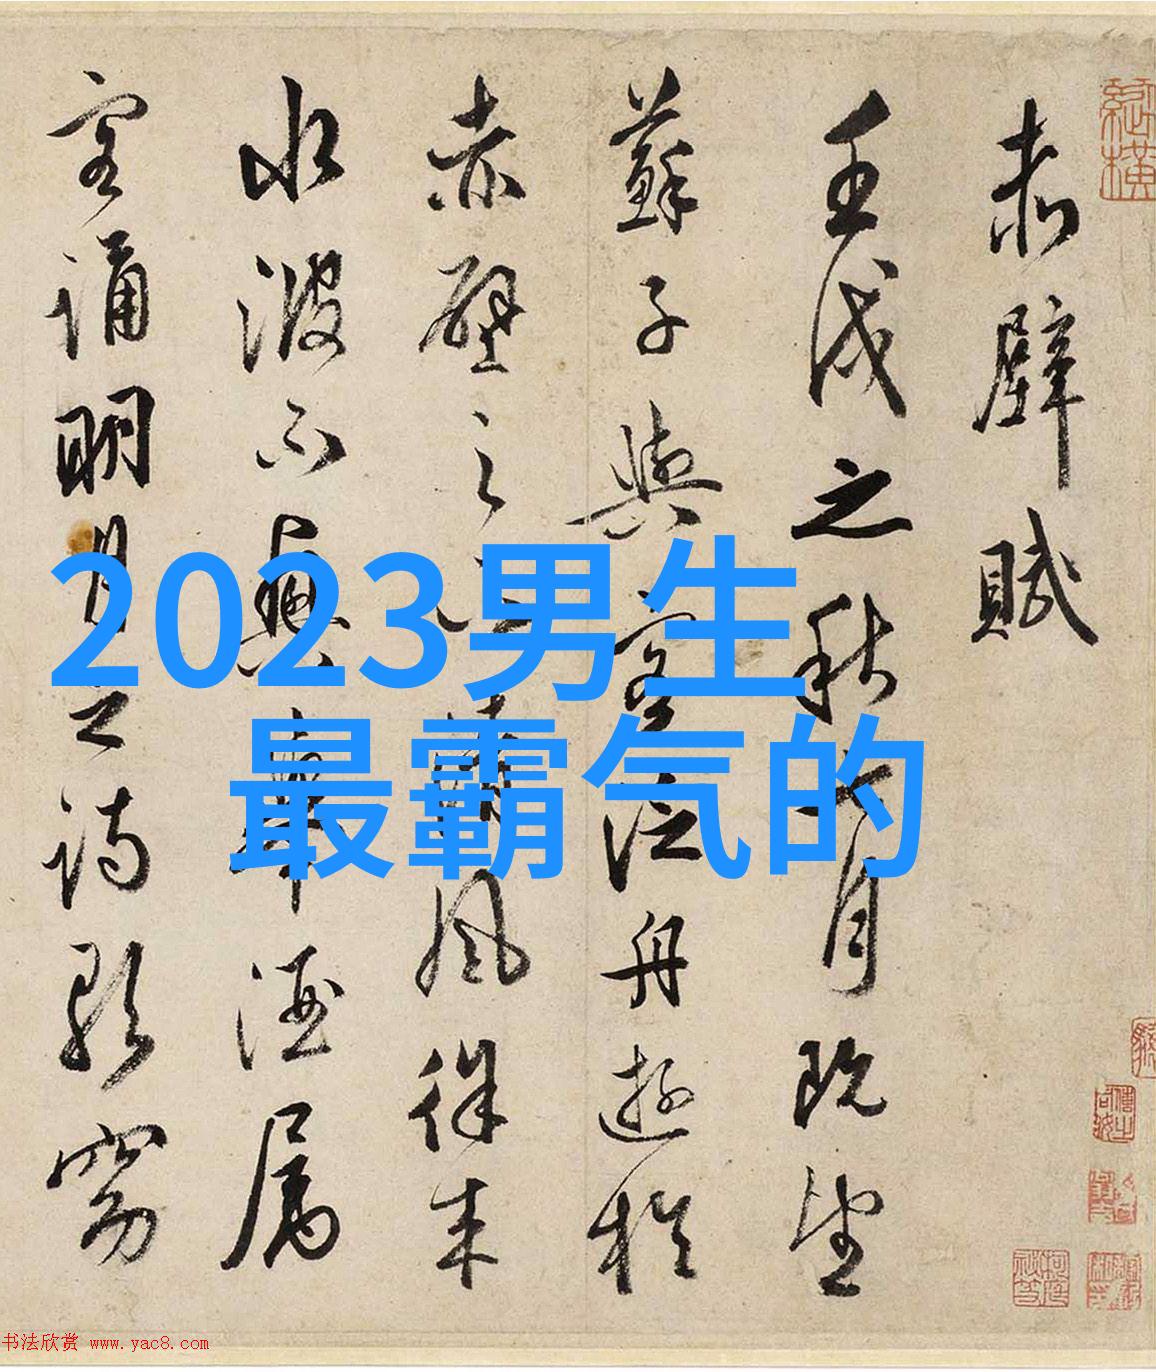 赤壁賦
壬戌之秋七月既望
蘇子與客泛舟遊於
赤壁之下清風徐來
水波不興舉酒屬
客誦明月之詩歌窈
2023男生
最霸气的
书法欣赏 www.yac8.com